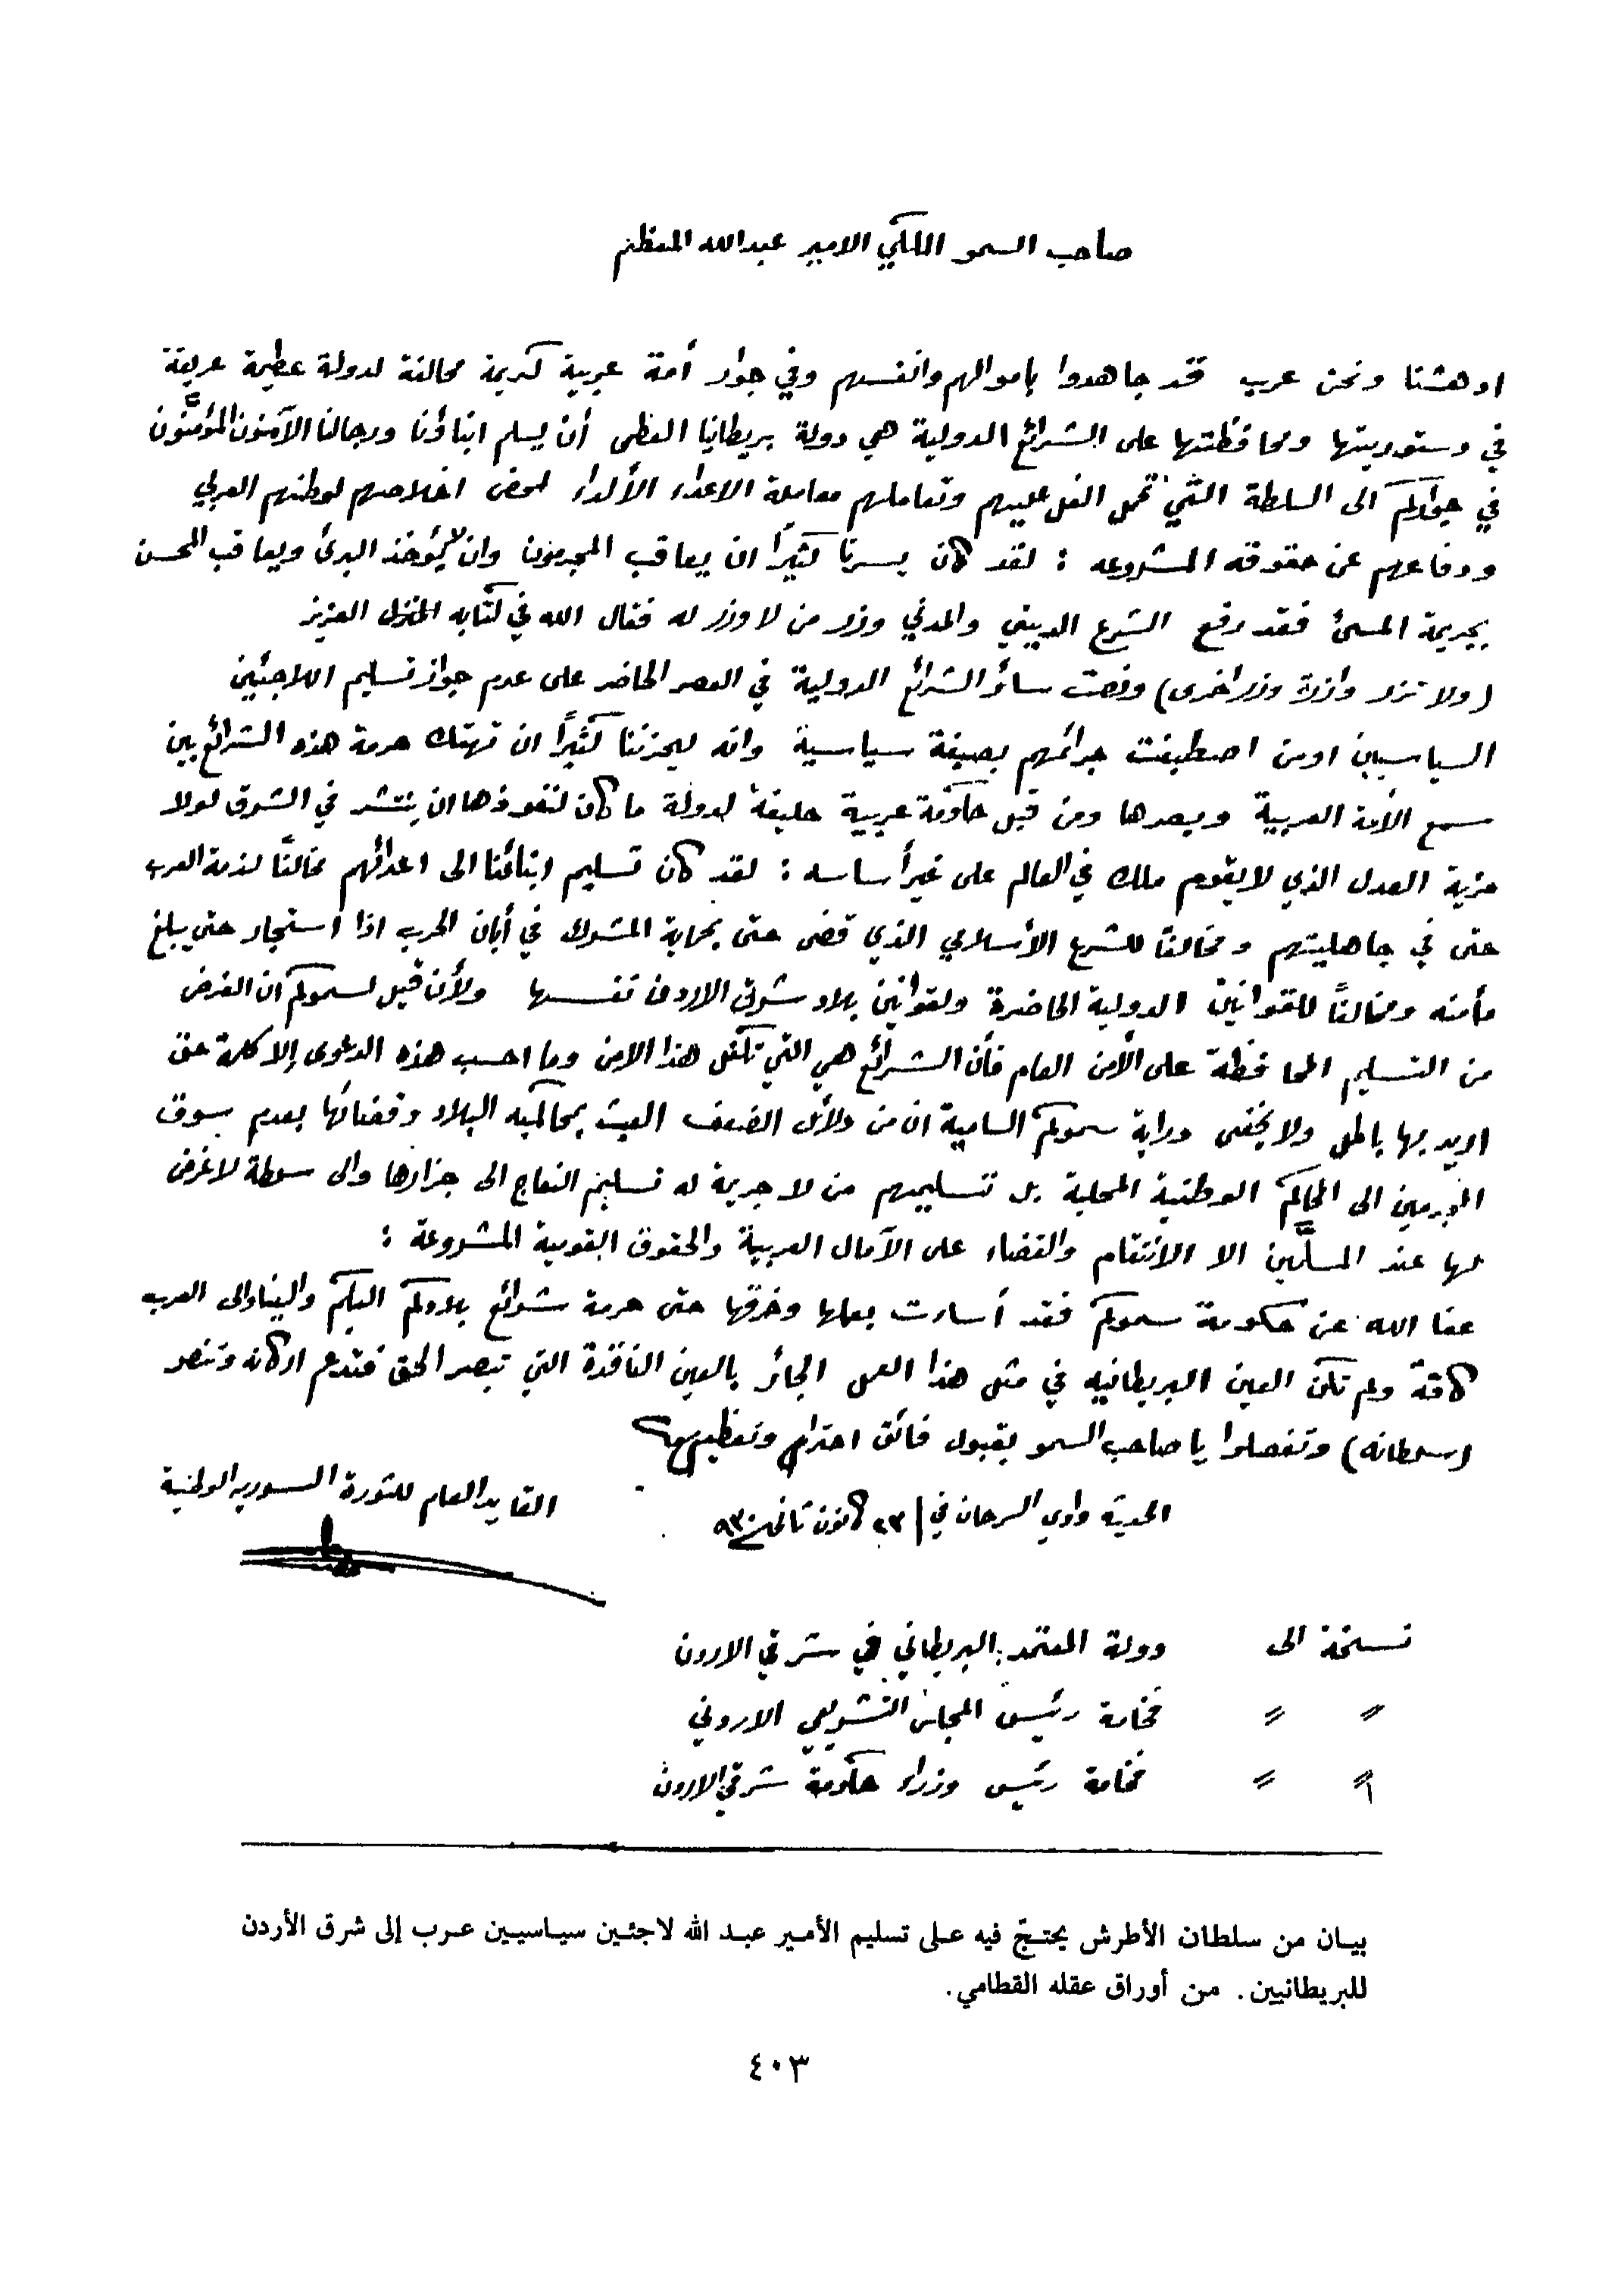 صاحب السمو الملكي الامير عبدالله المعظم
ادهشنا ونحن عرب قد جاهدوا باموالهم وانفسهم وفي جوار أمة عربية كريمة محالفة لدولة عظيمة عريقة
في دستوريتها ومحافظتها على الشرائع الدولية هي دولة بريطانيا العظمى أن يسلم ابناؤنا ورجالنا الآمنون المؤمَّنون
في جواركم الى السلطة التي تحمل الغل عليهم وتعاملهم معاملة الاعداء الألداء لمحض اخلاصهم لوطنهم العربي
ودفاعهم عن حقوقه المشروعه : لقد كان يسرنا كثيراً ان يعاقب المجرمون وان لا يؤخذ البرئ ويعاقب المحسن
بجريمة المسئ فقد رفع الشرع الديني والمدني وزر من لا وزر له فقال الله في كتابه المنزل العزيز
(ولا تزر وازرة وزر اخرى) ونصت سائر الشرائع الدولية في العصر الحاضر على عدم جواز تسليم اللاجئين
السياسيين اومن اصطبغت جرائمهم بصبغة سياسية وانه ليحزننا كثيراً ان تهتك حرمة هذه الشرائع بين
سمع الأمة العربية وبصرها ومن قبل حكومة عربية حليفة لدولة ما كان لنفوذها ان ينتشر في الشرق لولا
مزية العدل الذي لا يقوم ملك في العالم على غير أساسه : لقد كان تسليم ابنائنا الى اعدائهم مخالفاً لذمة العرب
حتى في جاهليتهم ومخالفاً للشرع الأسلامي الذي قضى حتى بحماية المشرك في أبان الحرب اذا استجار حتى يبلغ
مأمنه ومخالفاً للقوانين الدولية الحاضرة ولقوانين بلاد شرق الاردن نفسها ولأن قيل لسموكم ان الغرض
من التسليم المحافظة على الأمن العام فأن الشرائع هي التي تكفل هذا الامن وما احسب هذه الدعوى إلا كلمة حق
اريد بها باطل ولا يخفى دراية سموكم السامية ان من دلائل الضعف العبث بمحاكم البلاد وقضائها بعدم سوق
المجرمين الى المحاكم الوطنية المحلية بل تسليمهم من لا جريمة له تسليم النعاج الى جزارها والى سلطة لا غرض
لها عند المسلَّمين الا الانتقام والقضاء على الآمال العربية والحقوق القومية المشروعة :
عفا الله عن حكومة سموكم فقد أساءت بعملها وخرقها حتى حرمة شرائع بلادكم اليكم والينا والى العرب
كافة ولم تكن العين البريطانيه في مثل هذا العمل الجائر بالعين الناقدة التي تبصر الحق فتدعم اركانه وتنصر
(سلطانه) وتفضلوا يا صاحب السمو بقبول فائق احترامي وتعظيمي
الحديثة وادي السرحان في ٢٣ كانون ثاني سنة ٩٣٠
القايد العام للثورة السورية الوطنية
نسخة الى دولة المعتمد البريطاني في شرقي الاردن
〃 〃 فخامة رئيس المجلس التشريعي الاردني
〃 〃 فخامة رئيس وزراء حكومة شرقي الاردن
بيـان من سلطان الأطرش يحتـجّ فيه عـلى تسليم الأمـير عبـد الله لاجئـين سيـاسيـين عـرب إلى شرق الأردن
للبريطانيين. من أوراق عقله القطامي.
٤٠٣